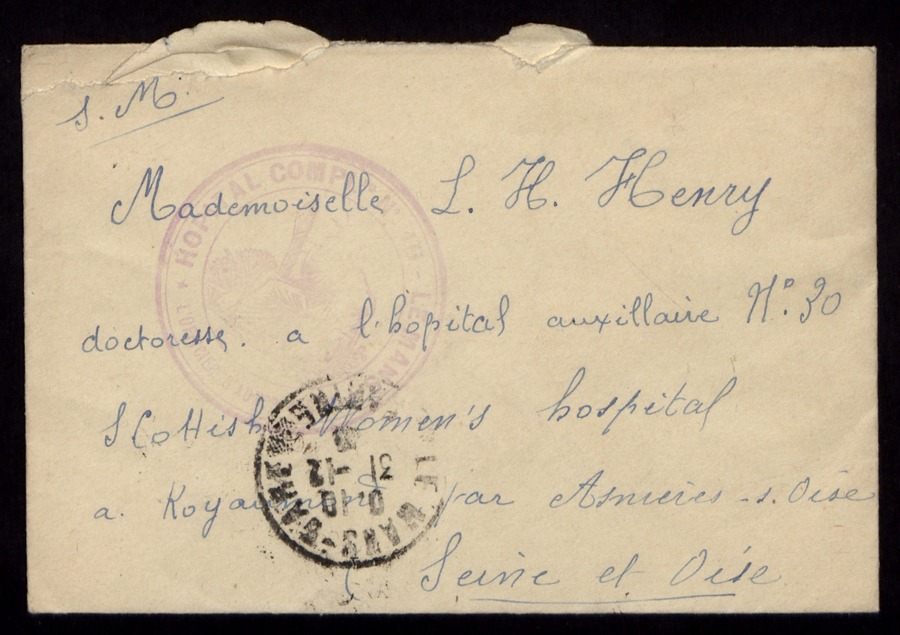 S. M.
Mademoiselle L. H. Henry
doctoresse. a l'hopital auxillaire N° 30
Scottish Women's hospital
a. Royaumont par Asnieres - s. Oise
Seine et Oise
HOPITAL COMP N° - LE MANS
LE MANS - GARE
31 -12